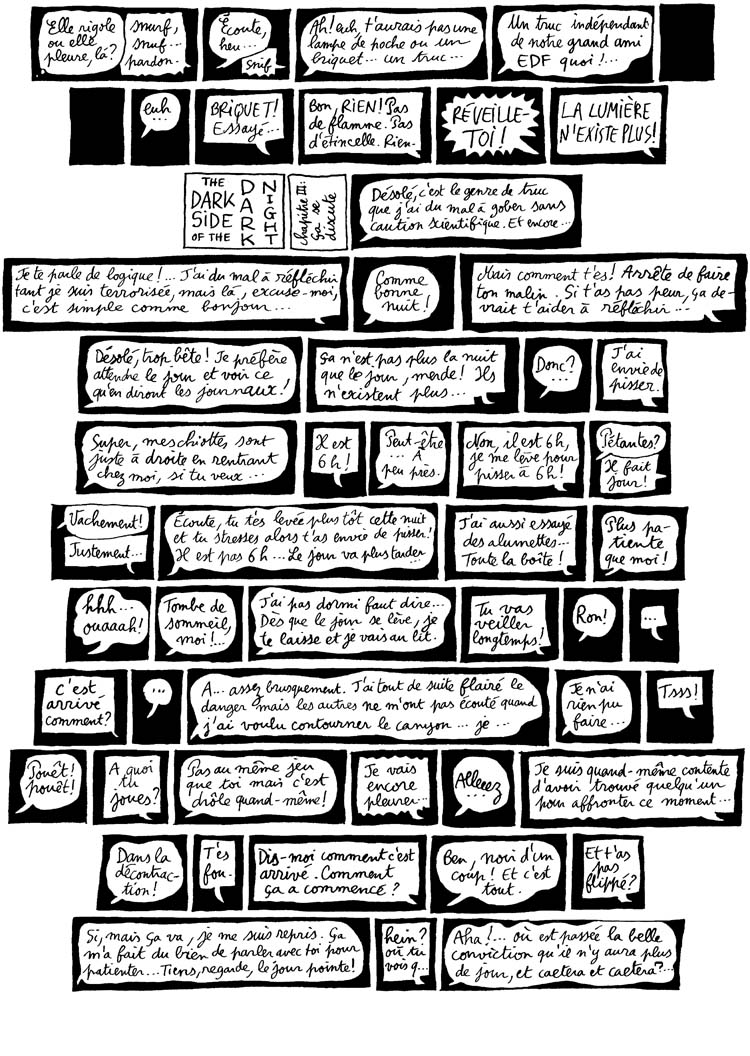 Elle rigole
ou elle
pleure, là?
snurf,
snuf...
pardon.
Écoute,
heu...
Snif
Ah! euh, t'aurais pas une
lampe de poche ou un
briquet... un truc...
Un truc indépendant
de notre grand ami
EDF quoi !...
euh
...
BRIQUET!
Essayé...
Bon, RIEN! Pas
de flamme. Pas
d'étincelle. Rien.
RÉVEILLE-
TOI!
LA LUMIÈRE
N'EXISTE PLUS!
THE
DARK
SIDE
OF THE
DARK
NIGHT
chapitre III:
ça se
discute
Désolé, c'est le genre de truc
que j'ai du mal à gober sans
caution scientifique. Et encore...
Je te parle de logique!... J'ai du mal à réfléchir
tant je suis terrorisée, mais là, excuse-moi,
c'est simple comme bonjour...
Comme
bonne
nuit!
Mais comment t'es! Arrête de faire
ton malin. Si t'as pas peur, ça de-
vrait t'aider à réfléchir...
Désolé, trop bête! Je préfère
attendre le jour et voir ce
qu'en diront les journaux!
Ça n'est pas plus la nuit
que le jour, merde! Ils
n'existent plus...
Donc?
...
J'ai
envie de
pisser.
Super, mes chiottes, sont
juste à droite en rentrant
chez moi, si tu veux...
Il est
6h!
Peut-être
... À
peu près.
Non, il est 6h,
je me lève pour
pisser à 6h!
Pétantes?
Il fait
jour!
Vachement!
Justement...
Écoute, tu t'es levée plus tôt cette nuit
et tu stresses alors t'as envie de pisser!
Il est pas 6h... Le jour va plus tarder...
J'ai aussi essayé
des alumettes...
Toute la boîte!
Plus pa-
tiente
que moi!
hhh...
ouaaah!
Tombe de
sommeil,
moi!...
J'ai pas dormi faut dire...
Dès que le jour se lève, je
te laisse et je vais au lit.
Tu vas
veiller
longtemps!
Ron!
...
C'est
arrivé
comment?
...
A... assez brusquement. J'ai tout de suite flairé le
danger mais les autres ne m'ont pas écouté quand
j'ai voulu contourner le canyon... je...
Je n'ai
rien pu
faire...
Tsss!
Pouêt!
pouêt!
A quoi
tu
joues?
Pas au même jeu
que toi mais c'est
drôle quand-même!
Je vais
encore
pleurer...
Alleeez
...
Je suis quand-même contente
d'avoir trouvé quelqu'un
pour affronter ce moment...
Dans la
décontrac-
tion!
T'es
fou.
Dis-moi comment c'est
arrivé. Comment
ça a commencé?
Ben, noir d'un
coup! Et c'est
tout.
Et t'as
pas
flippé?
Si, mais ça va, je me suis repris. Ça
m'a fait du bien de parler avec toi pour
patienter... Tiens, regarde, le jour pointe!
hein?
où tu
vois q...
Aha!... où est passée la belle
conviction qu'il n'y aura plus
de jour, et caetera et caetera?...